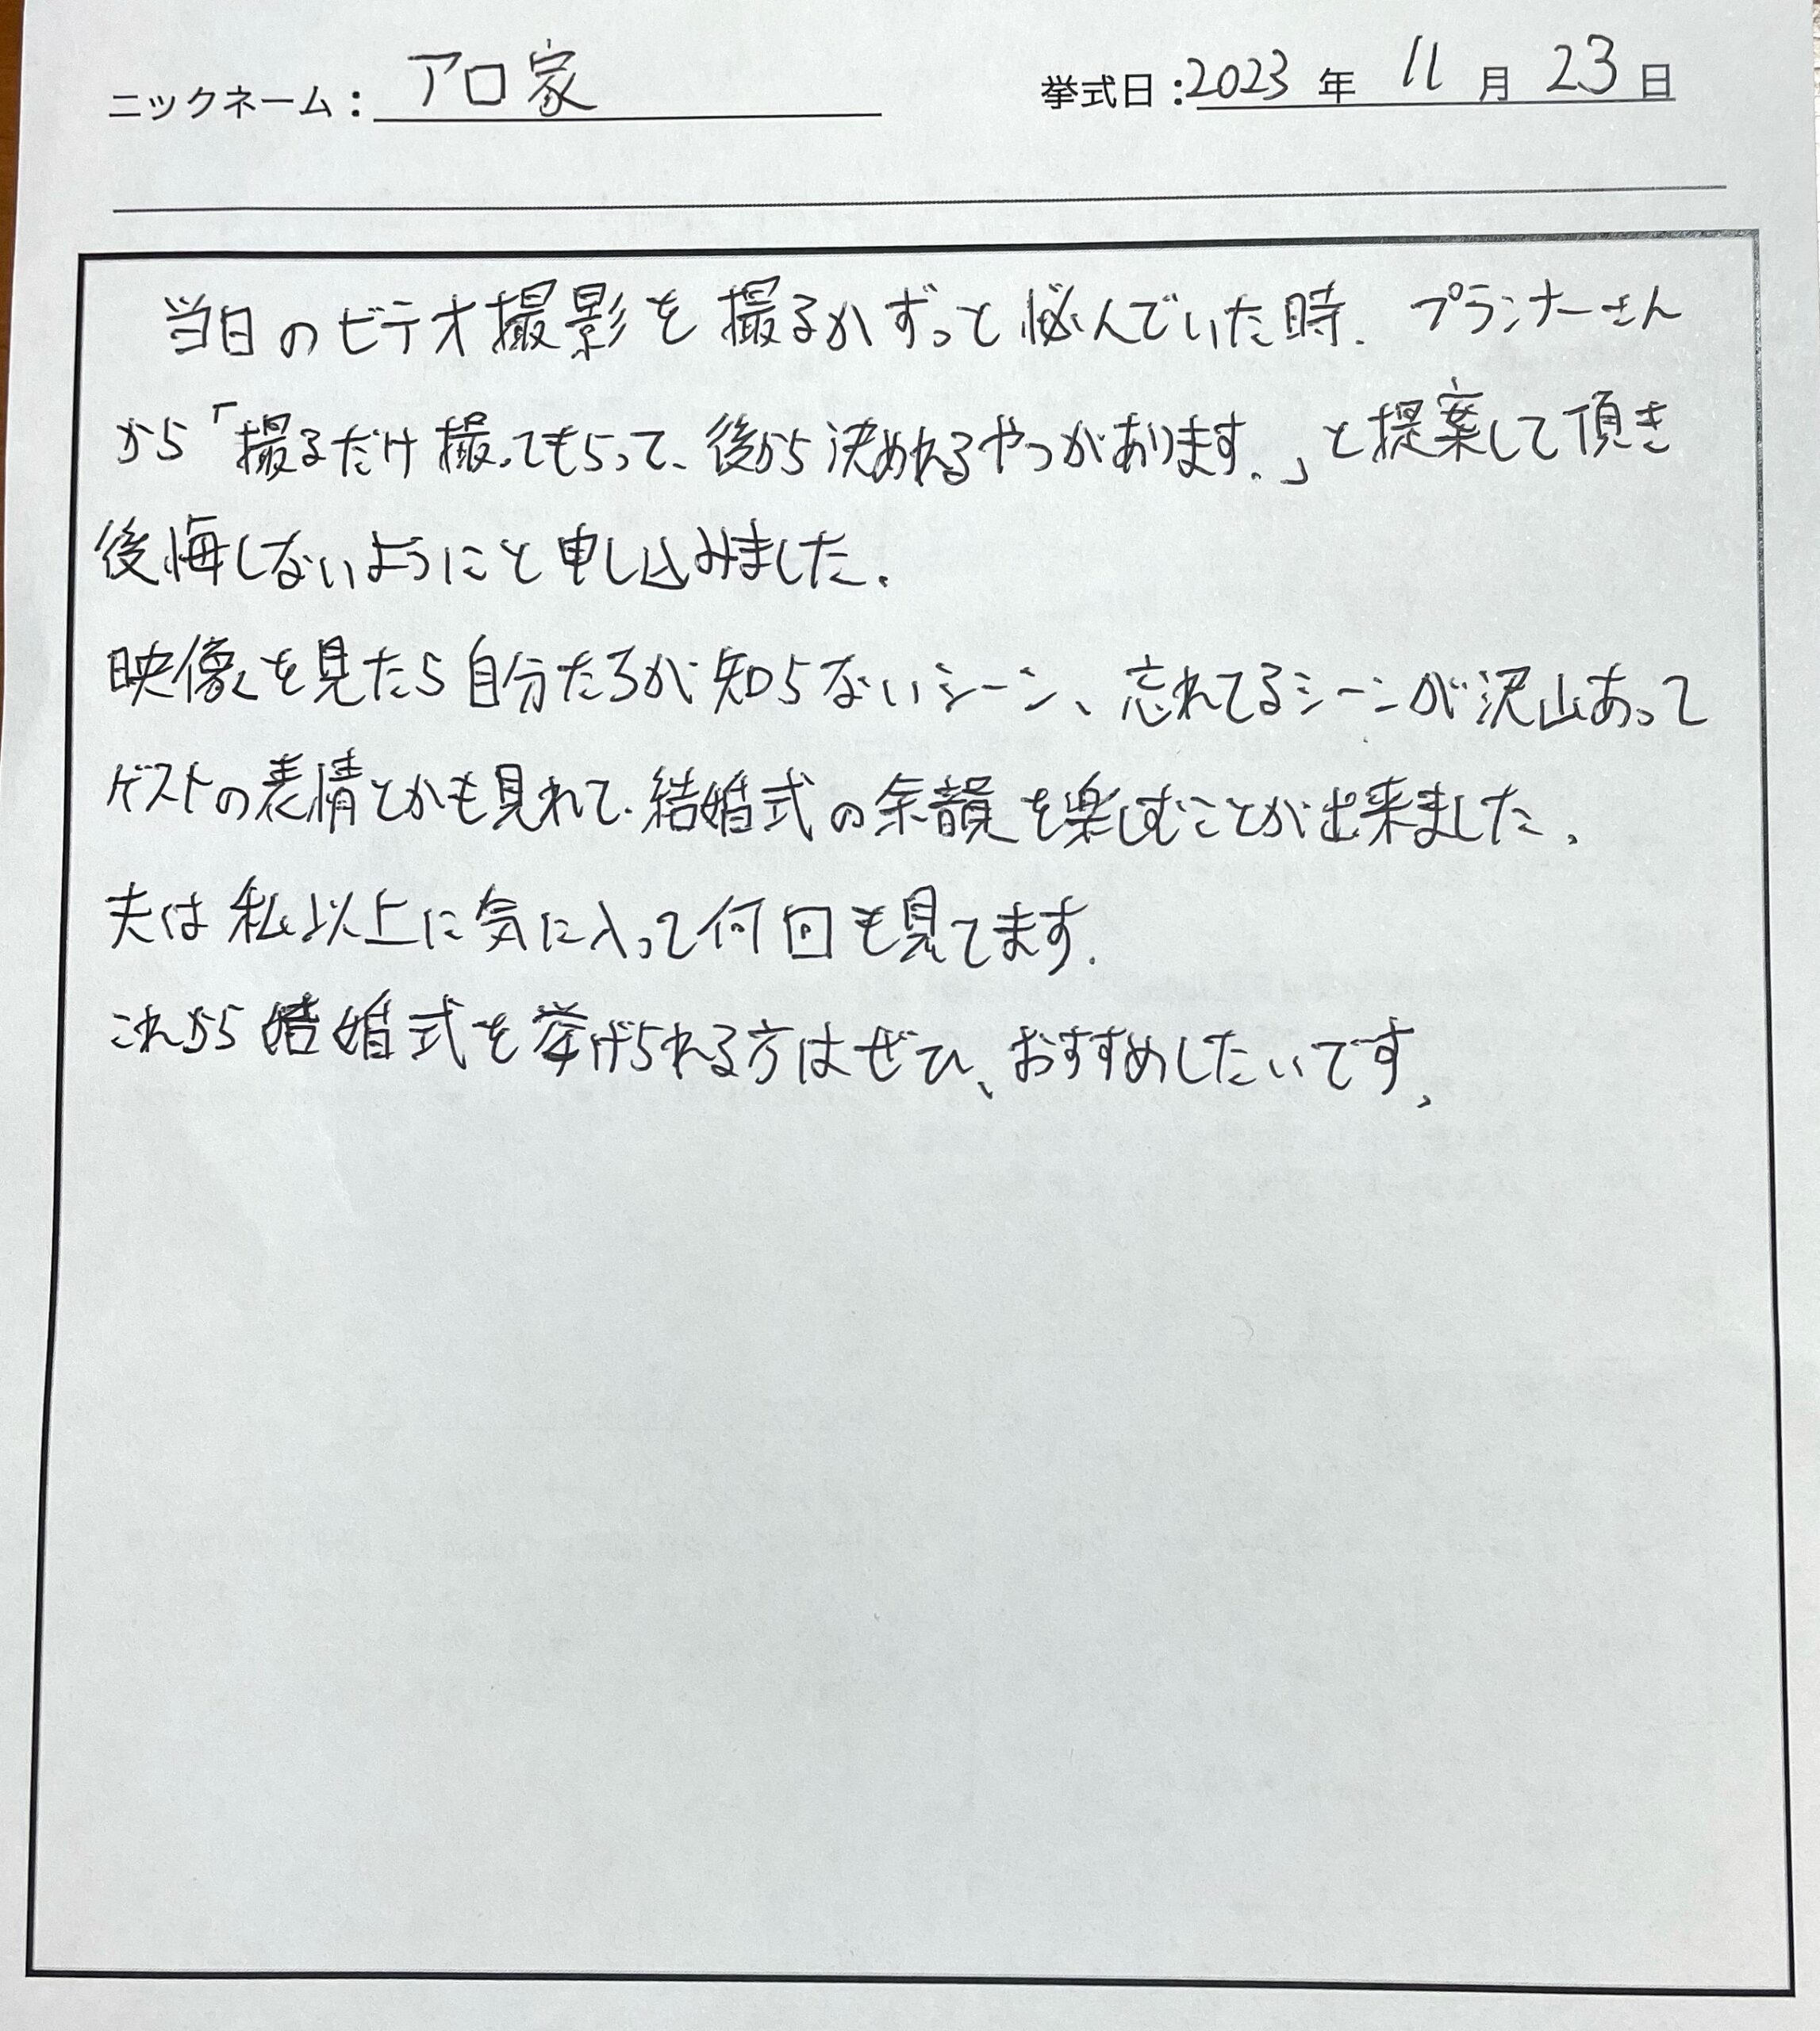 ニックネーム：アロ家 挙式日：2023年11月23日
当日のビデオ撮影を撮るかずっと悩んでいた時、プランナーさん
から「撮るだけ撮ってもらって、後から決めれるやつがあります。」と提案して頂き
後悔しないようにと申し込みました。
映像を見たら自分たちが知らないシーン、忘れてるシーンが沢山あって
ゲストの表情とかも見れて、結婚式の余韻を楽しむことが出来ました。
夫は私以上に気に入って何回も見てます。
これから結婚式を挙げられる方はぜひ、おすすめしたいです。